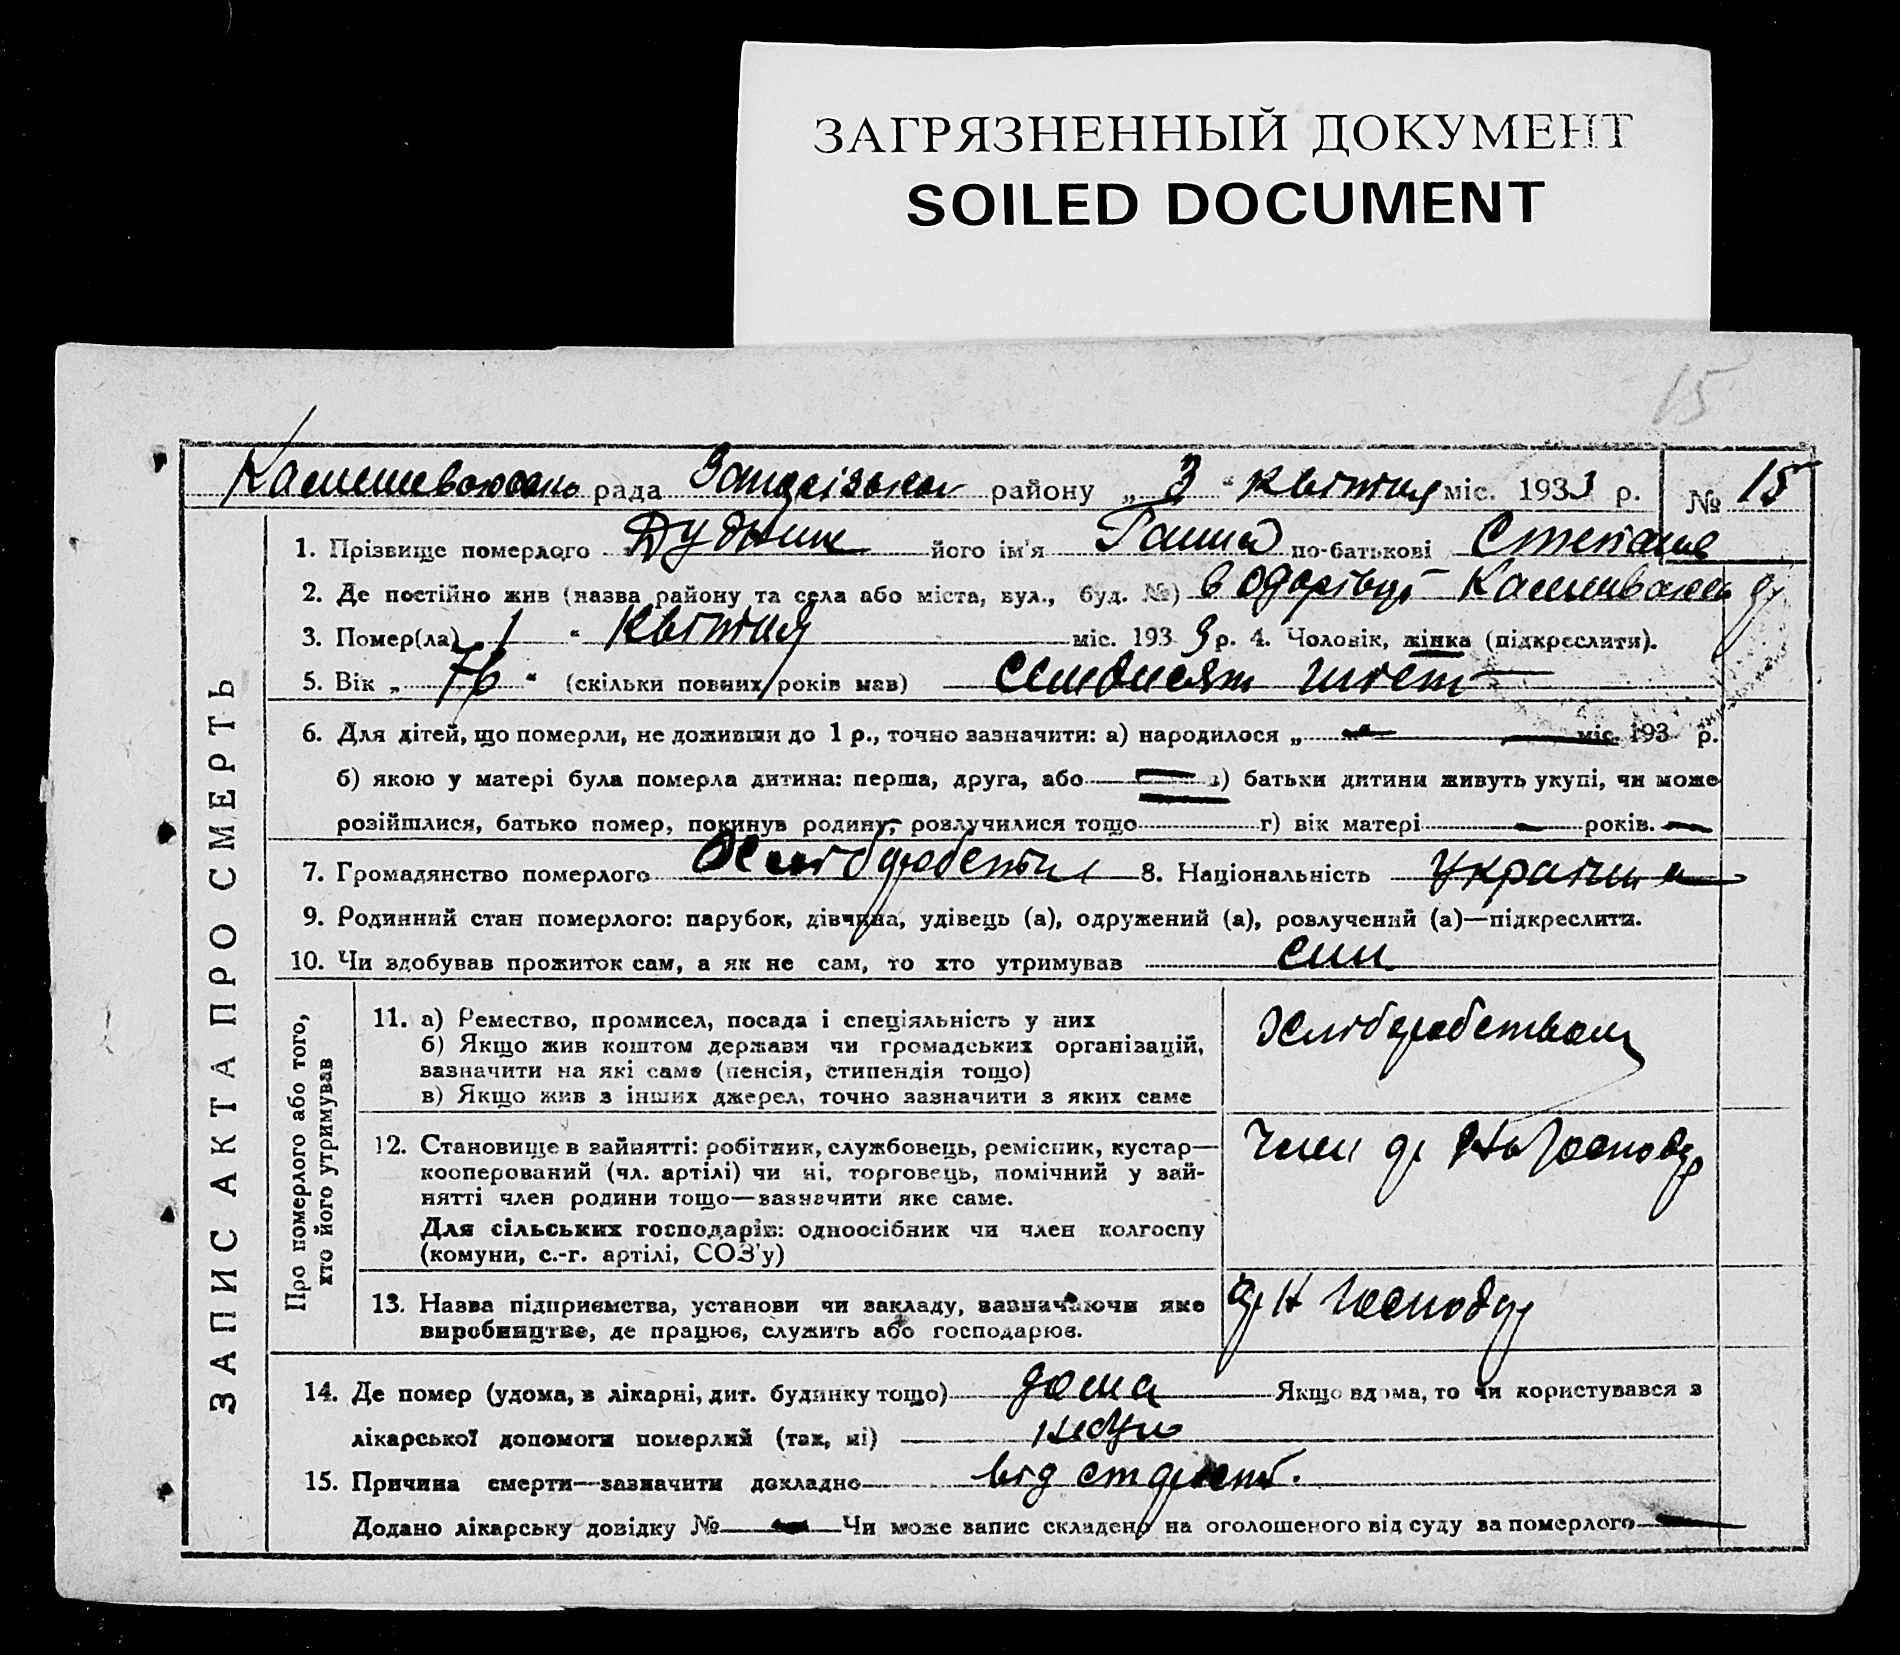 ЗАГРЯЗНЕННЫЙ ДОКУМЕНТ
SOILED DOCUMENT
15
рада району „ 3 “ квітня міс. 1933 р. № 15
ЗАПИС АКТА ПРО СМЕРТЬ
1. Прізвище померлого його ім'я Ганна по-батькові
2. Де постійно жив (назва району та села або міста, вул., буд. №)
3. Помер(ла) „ 1 “ квітня міс. 1933 р. 4. Чоловік, жінка (підкреслити).
5. Вік „ 76 “ (скільки повних років мав) семдисят шість
6. Для дітей, що померли, не доживши до 1 р., точно зазначити: а) народилося „ — “ — міс. 193 р.
б) якою у матері була померла дитина: перша, друга, або — в) батьки дитини живуть укупі, чи може
розійшлися, батько помер, покинув родину, розлучилися тощо г) вік матері — років. —
7. Громадянство померлого 8. Національність
9. Родинний стан померлого: парубок, дівчина, удівець (а), одружений (а), розлучений (а)—підкреслити.
10. Чи здобував прожиток сам, а як не сам, то хто утримував син
Про померлого або того,
хто його утримував
11. а) Ремество, промисел, посада і спеціяльність у них
б) Якщо жив коштом держави чи громадських організацій,
зазначити на які саме (пенсія, стипендія тощо)
в) Якщо жив з інших джерел, точно зазначити з яких саме
12. Становище в зайнятті: робітник, службовець, ремісник, кустар—
кооперований (чл. артілі) чи ні, торговець, помічний у зай-
нятті член родини тощо—зазначити яке саме.
Для сільських господарів: одноосібник чи член колгоспу
(комуни, с.-г. артілі, СОЗ'у)
13. Назва підприємства, установи чи закладу, зазначаючи яке
виробництво, де працює, служить або господарює.
14. Де помер (удома, в лікарні, дит. будинку тощо) дома Якщо вдома, то чи користувався з
лікарської допомоги померлий (так, ні)
15. Причина смерти—зазначити докладно від
Додано лікарську довідку № — Чи може запис складено на оголошеного від суду за померлого —